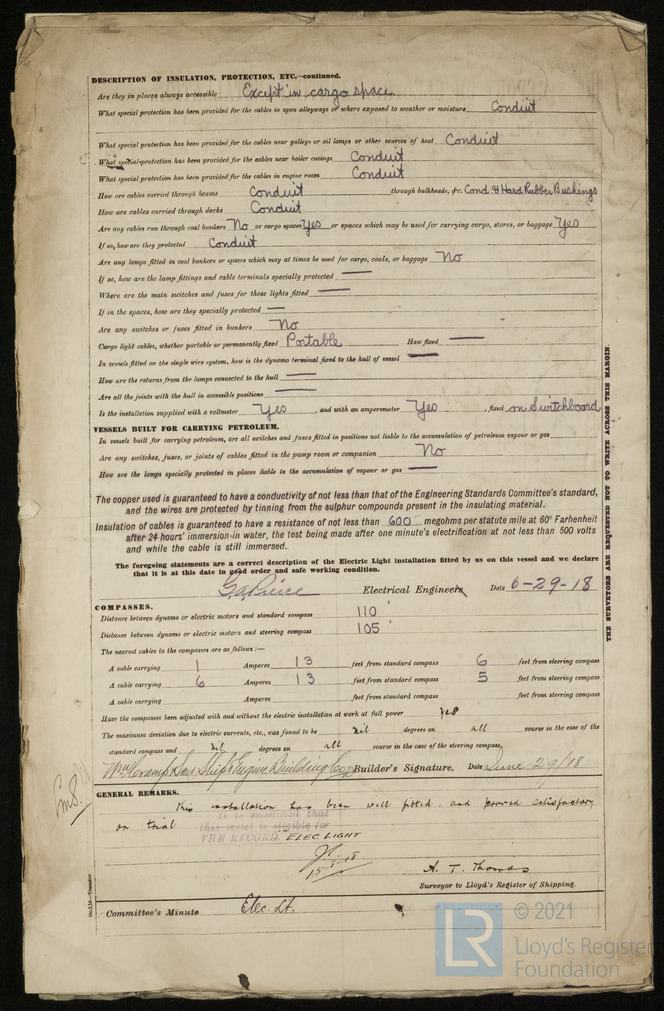 DESCRIPTION OF INSULATION, PROTECTION, ETC.—continued.
Are they in places always accessible Except in cargo space.
What special protection has been provided for the cables in open alleyways or where exposed to weather or moisture Conduit
What special protection has been provided for the cables near galleys or oil lamps or other sources of heat Conduit
What special protection has been provided for the cables near boiler casings Conduit
What special protection has been provided for the cables in engine room Conduit
How are cables carried through beams Conduit through bulkheads, &c. Cond & Hard Rubber Bushings
How are cables carried through decks Conduit
Are any cables run through coal bunkers No or cargo spaces Yes or spaces which may be used for carrying cargo, stores, or baggage Yes
If so, how are they protected Conduit
Are any lamps fitted in coal bunkers or spaces which may at times be used for cargo, coals, or baggage No
If so, how are the lamp fittings and cable terminals specially protected —
Where are the main switches and fuses for these lights fitted —
If in the spaces, how are they specially protected —
Are any switches or fuses fitted in bunkers No
Cargo light cables, whether portable or permanently fixed Portable How fixed —
In vessels fitted on the single wire system, how is the dynamo terminal fixed to the hull of vessel —
How are the returns from the lamps connected to the hull —
Are all the joints with the hull in accessible positions —
Is the installation supplied with a voltmeter Yes , and with an amperemeter Yes , fixed on Switchboard
VESSELS BUILT FOR CARRYING PETROLEUM.
In vessels built for carrying petroleum, are all switches and fuses fitted in positions not liable to the accumulation of petroleum vapour or gas
Are any switches, fuses, or joints of cables fitted in the pump room or companion No
How are the lamps specially protected in places liable to the accumulation of vapour or gas —
The copper used is guaranteed to have a conductivity of not less than that of the Engineering Standards Committee's standard,
and the wires are protected by tinning from the sulphur compounds present in the insulating material.
Insulation of cables is guaranteed to have a resistance of not less than 600 megohms per statute mile at 60° Farhenheit
after 24 hours' immersion in water, the test being made after one minute's electrification at not less than 500 volts
and while the cable is still immersed.
The foregoing statements are a correct description of the Electric Light installation fitted by us on this vessel and we declare
that it is at this date in good order and safe working condition.
Electrical Engineers Date 6-29-18
COMPASSES.
Distance between dynamo or electric motors and standard compass 110'
Distance between dynamo or electric motors and steering compass 105'
The nearest cables to the compasses are as follows:—
A cable carrying 1 Amperes 13 feet from standard compass 6 feet from steering compass
A cable carrying 6 Amperes 13 feet from standard compass 5 feet from steering compass
A cable carrying Amperes feet from standard compass feet from steering compass
Have the compasses been adjusted with and without the electric installation at work at full power Yes
The maximum deviation due to electric currents, etc., was found to be nil degrees on all course in the case of the
standard compass and nil degrees on all course in the case of the steering compass,
Wm Cramp & Sons Ship & Engine Building Co Builder's Signature. Date June 29/18
GENERAL REMARKS.
This installation has been well fitted and proved satisfactory
on trial
It is submitted that
this vessel is eligible for
THE RECORD. ELEC. LIGHT
A. T. Thomas
Surveyor to Lloyd's Register of Shipping.
Committee's Minute Elec. Lt.
THE SURVEYORS ARE REQUESTED NOT TO WRITE ACROSS THIS MARGIN.
LR © 2021
Lloyd's Register
Foundation